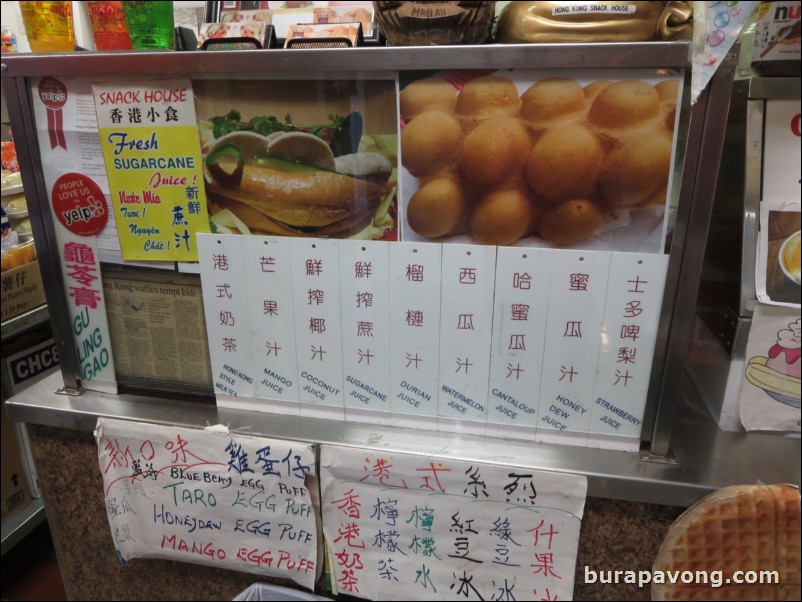 HAWAII
HONG KONG SNACK HOUSE
SNACK HOUSE
香港小食
Fresh
SUGARCANE
Juice!
Nước Mía
Tươi!
Nguyên
Chất!
新鮮
蔗汁
yelp
PEOPLE LOVE US
ON
yelp
龜苓膏
GU
LING
GAO
Kong waffles tempt kids
港式奶茶
HONG KONG
STYLE
MILK TEA
芒果汁
MANGO
JUICE
鮮搾椰汁
COCONUT
JUICE
鮮搾蔗汁
SUGARCANE
JUICE
榴槤汁
DURIAN
JUICE
西瓜汁
WATERMELON
JUICE
哈蜜瓜汁
CANTALOUP
JUICE
蜜瓜汁
HONEY
DEW JUICE
士多啤梨汁
STRAWBERRY
JUICE
味 雞蛋仔
BLUEBERRY EGG PUFF
TARO EGG PUFF
HONEYDEW EGG PUFF
MANGO EGG PUFF
港式
香港奶茶
檸檬茶
檸檬水
紅豆冰
綠豆冰
什果冰
burapavong.com